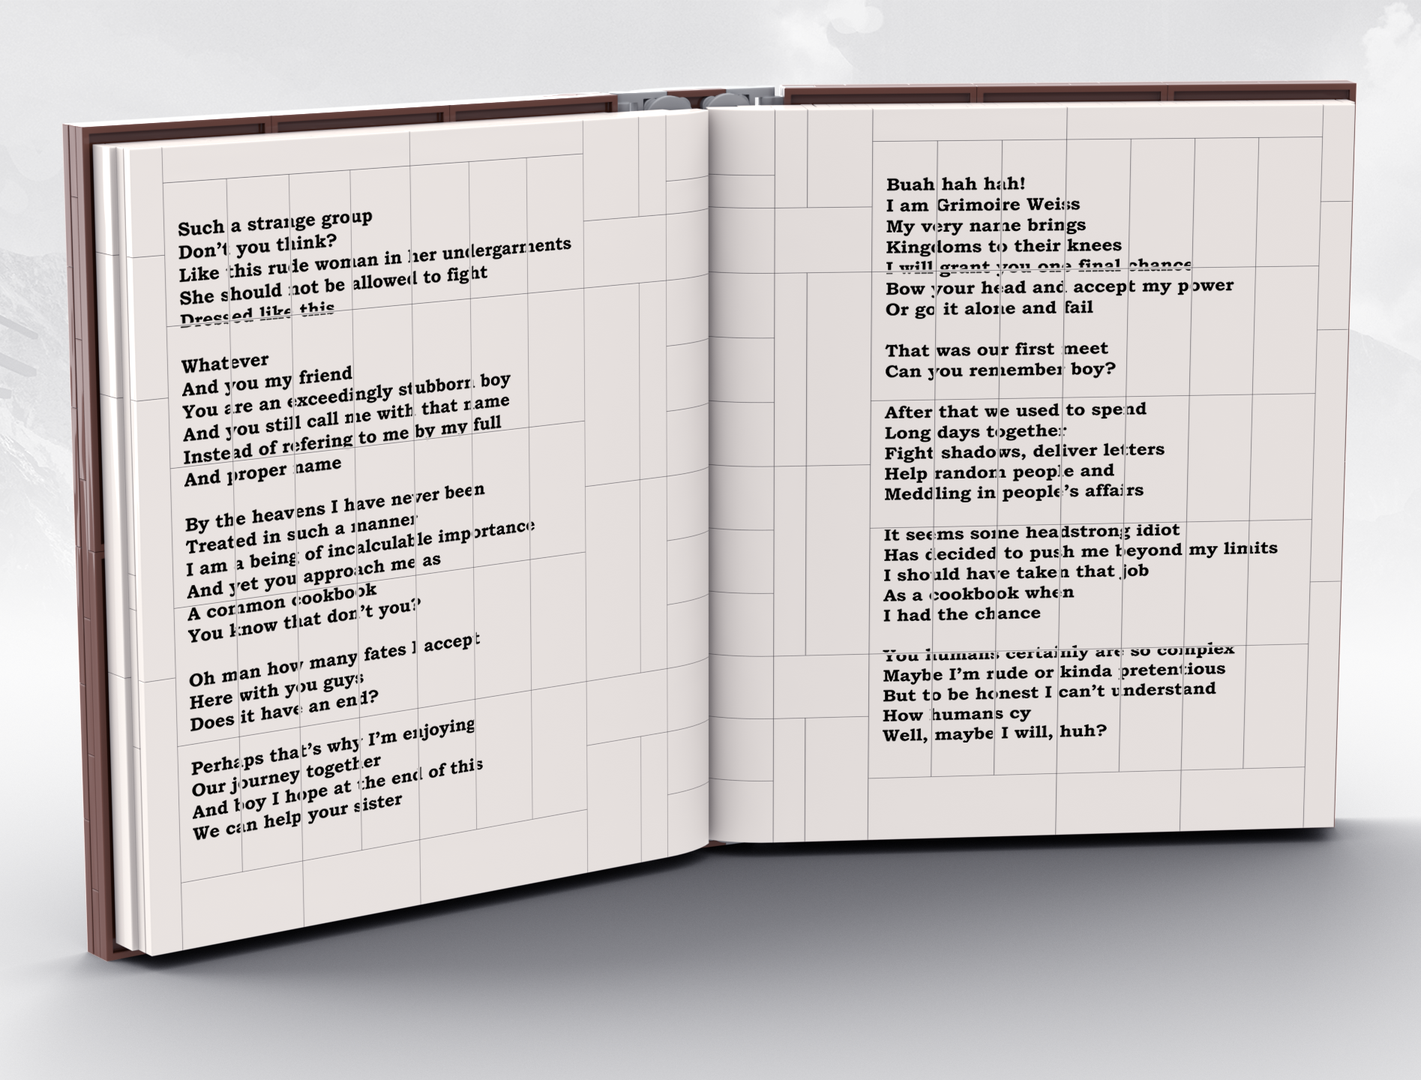 Such a strange group
Don't you think?
Like this rude woman in her undergarments
She should not be allowed to fight
Dressed like this
Whatever
And you my friend
You are an exceedingly stubborn boy
And you still call me with that name
Instead of refering to me by my full
And proper name
By the heavens I have never been
Treated in such a manner
I am a being of incalculable importance
And yet you approach me as
A common cookbook
You know that don't you?
Oh man how many fates I accept
Here with you guys
Does it have an end?
Perhaps that's why I'm enjoying
Our journey together
And boy I hope at the end of this
We can help your sister
Buah hah hah!
I am Grimoire Weiss
My very name brings
Kingdoms to their knees
I will grant you one final chance
Bow your head and accept my power
Or go it alone and fail
That was our first meet
Can you remember boy?
After that we used to spend
Long days together
Fight shadows, deliver letters
Help random people and
Meddling in people's affairs
It seems some headstrong idiot
Has decided to push me beyond my limits
I should have taken that job
As a cookbook when
I had the chance
You humans certainly are so complex
Maybe I'm rude or kinda pretentious
But to be honest I can't understand
How humans cy
Well, maybe I will, huh?